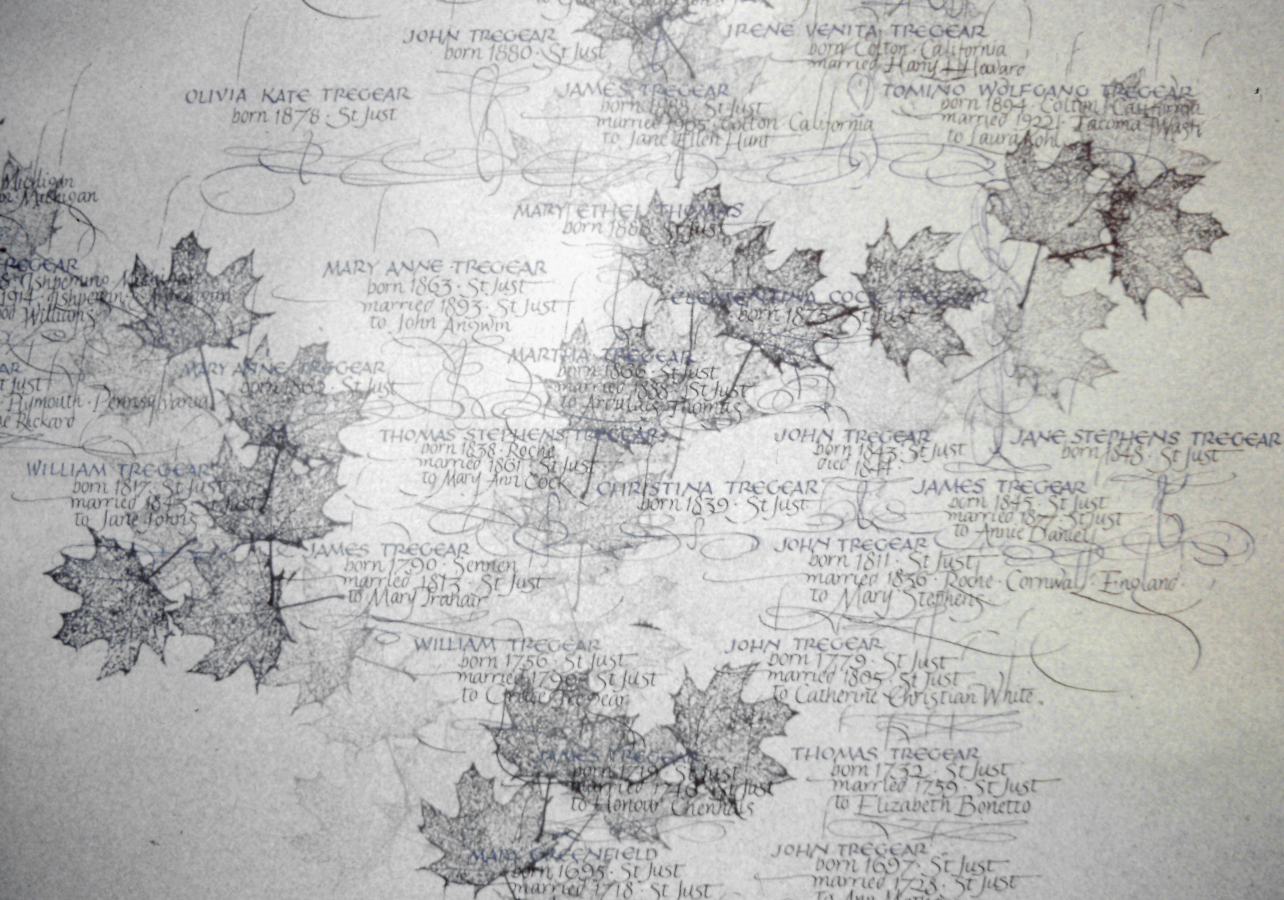 JOHN TREGEAR
born 1880 · St Just
IRENE VENITA TREGEAR
born Colton · California
married Harry H Howard
OLIVIA KATE TREGEAR
born 1878 · St Just
JAMES TREGEAR
born St Just
married Colton California
to Jane Ellen Hunt
TOMINO WOLFGANG TREGEAR
born 1894 · Colton California
married 1922 · Tacoma Wash
to Laura Kohl
Michigan
Michigan
MARY ETHEL THOMAS
born St Just
TREGEAR
Ishpeming Michigan
1914 · Ishpeming · Michigan
Williams
MARY ANNE TREGEAR
born 1863 · St Just
married 1893 · St Just
to John Angwin
CLEMENTINA COCK TREGEAR
born 1875 · St Just
MARTHA TREGEAR
born 1866 · St Just
married 1888 · St Just
to Thomas
MARY ANNE TREGEAR
born St Just
St Just
Plymouth · Pennsylvania
Rickard
THOMAS STEPHENS TREGEAR
born 1838 · Roche
married 1861 · St Just
to Mary Ann Cock
JOHN TREGEAR
born 1843 · St Just
died 1844
JANE STEPHENS TREGEAR
born 1848 · St Just
WILLIAM TREGEAR
born 1817 · St Just
married St Just
to Jane Johns
CHRISTINA TREGEAR
born 1839 · St Just
JAMES TREGEAR
born 1845 · St Just
married 1877 · St Just
to Annie Daniel
JAMES TREGEAR
born 1790 · Sennen
married 1813 · St Just
to Mary Trahair
JOHN TREGEAR
born 1811 · St Just
married 1836 · Roche · Cornwall · England
to Mary Stephens
WILLIAM TREGEAR
born 1756 · St Just
married St Just
to
JOHN TREGEAR
born 1779 · St Just
married 1805 · St Just
to Catherine Christian White
JAMES TREGEAR
born 1719 · St Just
married St Just
to Honour Chenhals
THOMAS TREGEAR
born 1732 · St Just
married 1759 · St Just
to Elizabeth Bonetto
MARY GREENFIELD
born 1695 · St Just
married 1718 · St Just
JOHN TREGEAR
born 1697 · St Just
married 1728 · St Just
to Ann